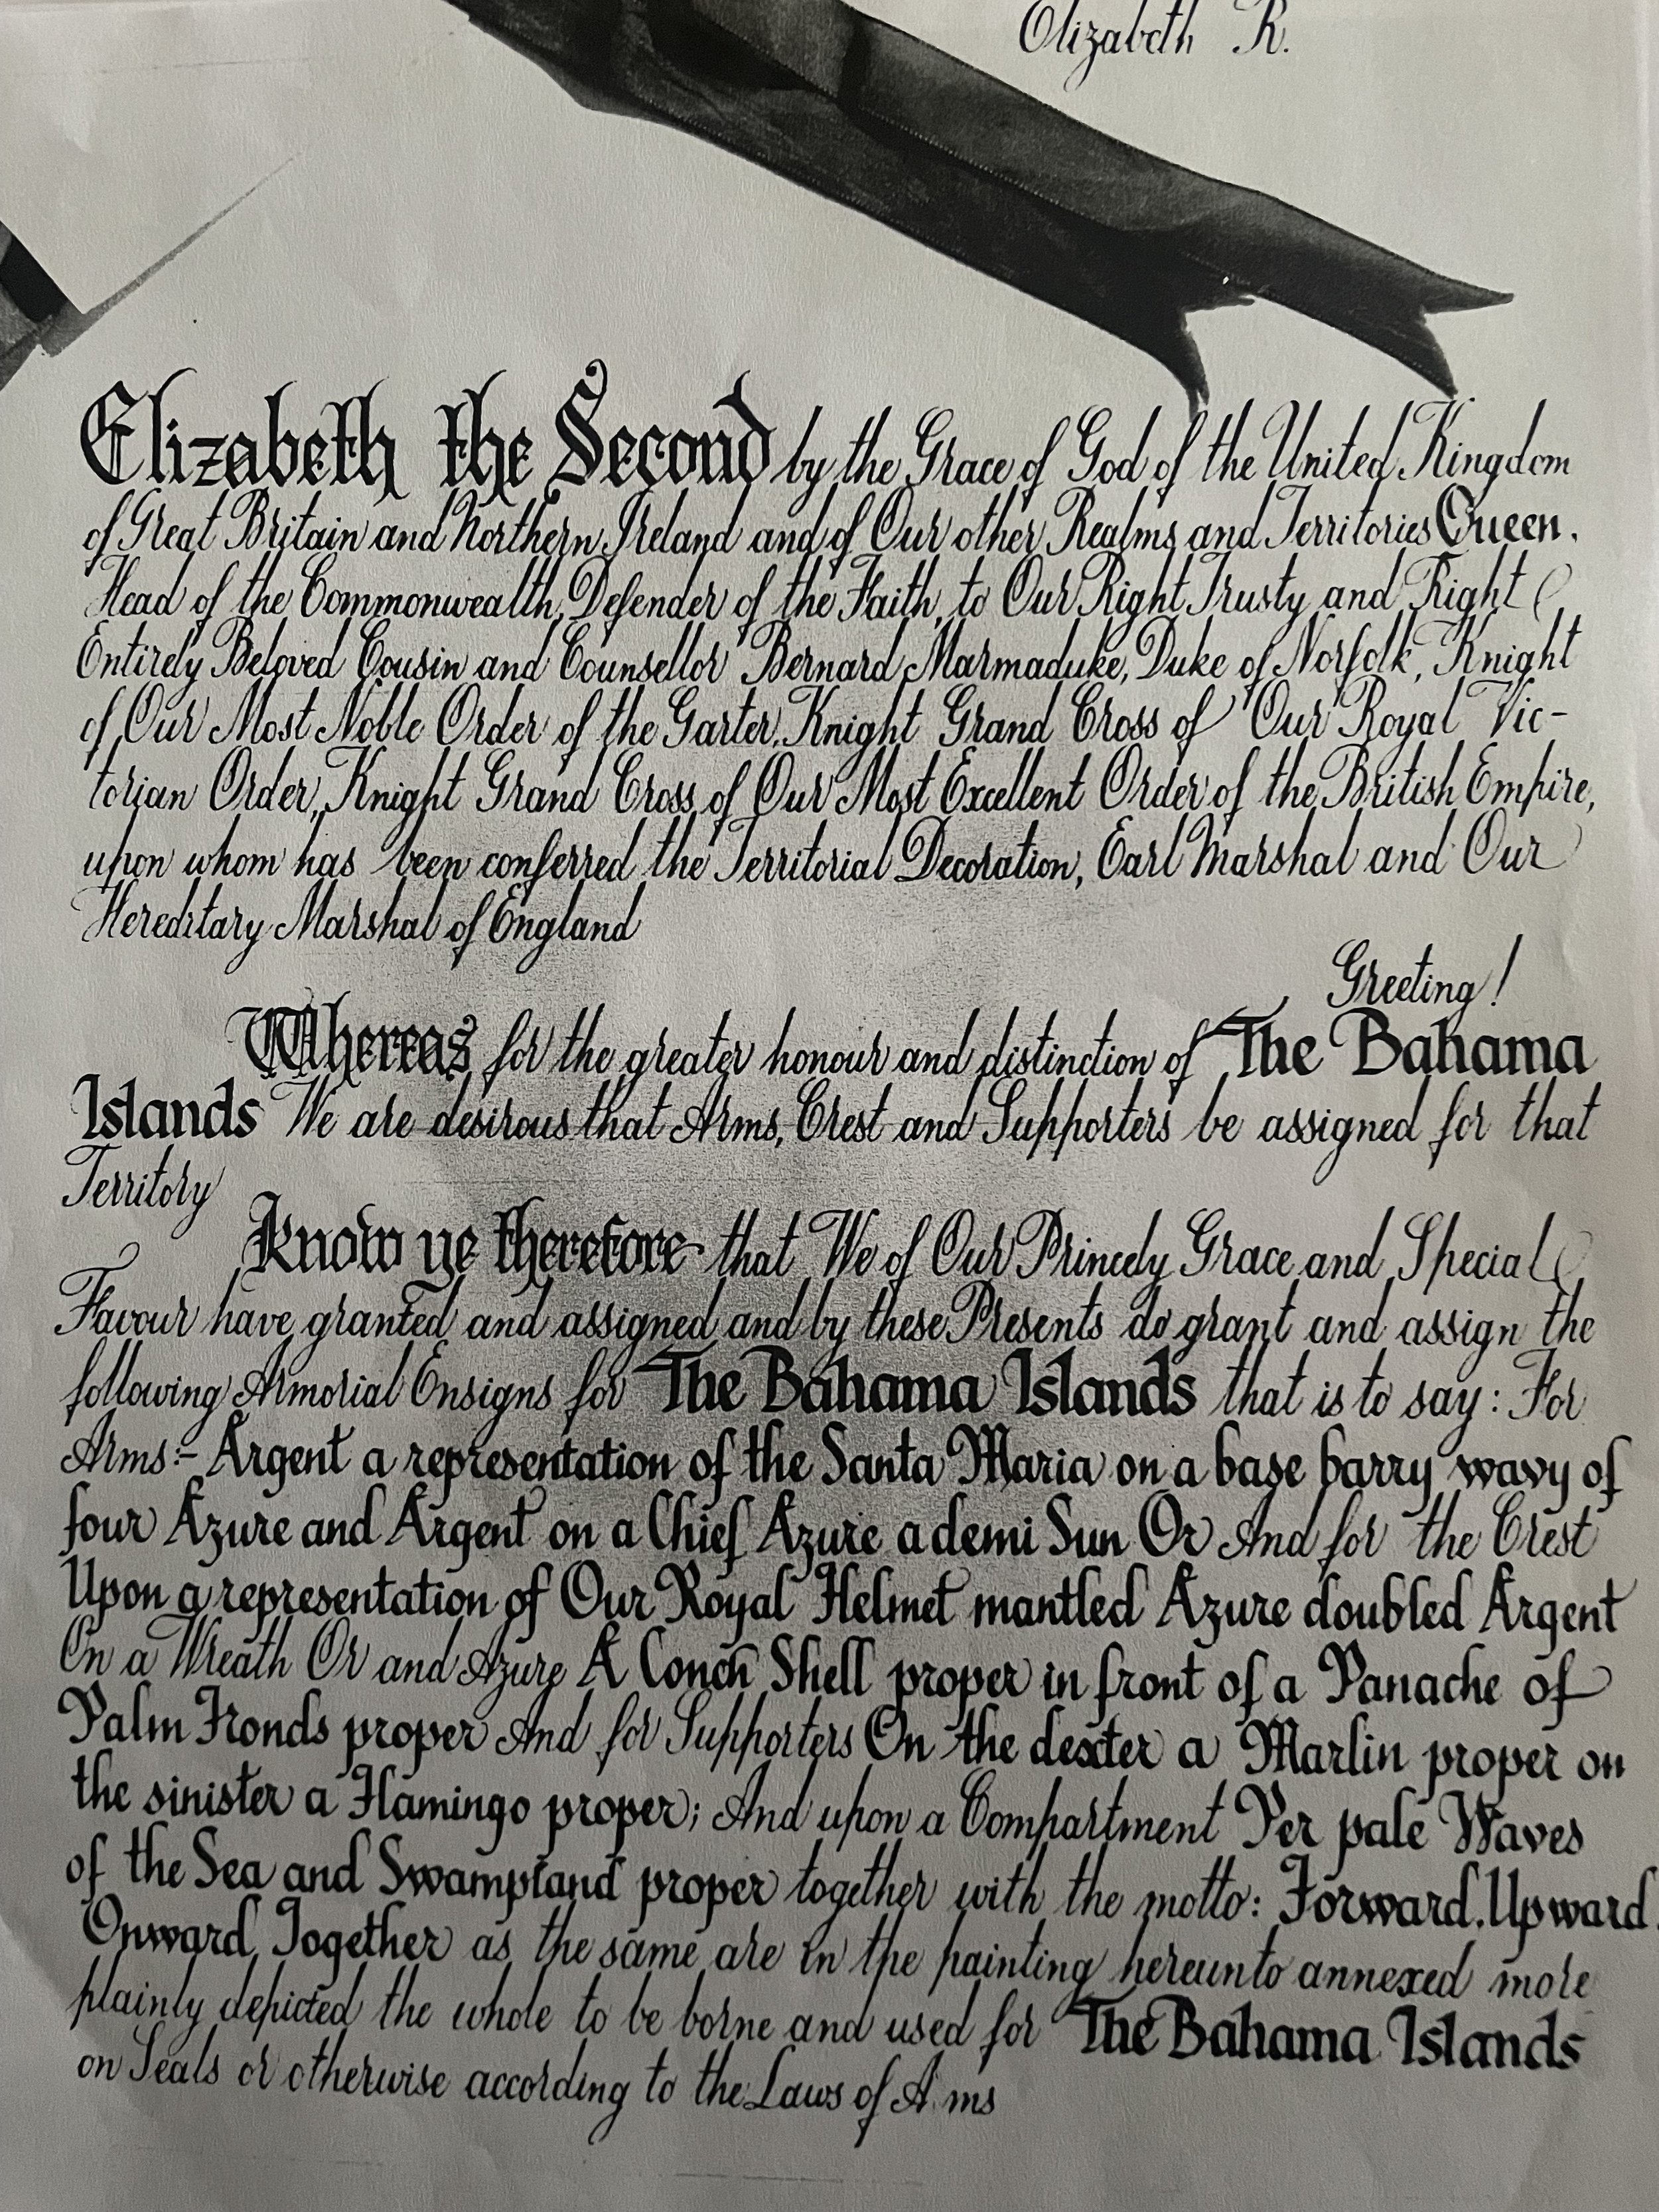 Elizabeth R.
Elizabeth the Second by the Grace of God of the United Kingdom
of Great Britain and Northern Ireland and of Our other Realms and Territories Queen,
Head of the Commonwealth, Defender of the Faith, to Our Right Trusty and Right
Entirely Beloved Cousin and Counsellor Bernard Marmaduke, Duke of Norfolk, Knight
of Our Most Noble Order of the Garter, Knight Grand Cross of Our Royal Vic-
torian Order, Knight Grand Cross of Our Most Excellent Order of the British Empire,
upon whom has been conferred the Territorial Decoration, Earl Marshal and Our
Hereditary Marshal of England
Greeting!
Whereas for the greater honour and distinction of The Bahama
Islands We are desirous that Arms, Crest and Supporters be assigned for that
Territory
Know ye therefore that We of Our Princely Grace and Special
Favour have granted and assigned and by these Presents do grant and assign the
following Armorial Ensigns for The Bahama Islands that is to say: For
Arms:- Argent a representation of the Santa Maria on a base barry wavy of
four Azure and Argent on a Chief Azure a demi Sun Or And for the Crest
Upon a representation of Our Royal Helmet mantled Azure doubled Argent
On a Wreath Or and Azure A Conch Shell proper in front of a Panache of
Palm Fronds proper And for Supporters On the dexter a Marlin proper on
the sinister a Flamingo proper; And upon a Compartment Per pale Waves
of the Sea and Swampland proper together with the motto: Forward, Upward,
Onward, Together as the same are in the painting hereunto annexed more
plainly depicted the whole to be borne and used for The Bahama Islands
on Seals or otherwise according to the Laws of Arms